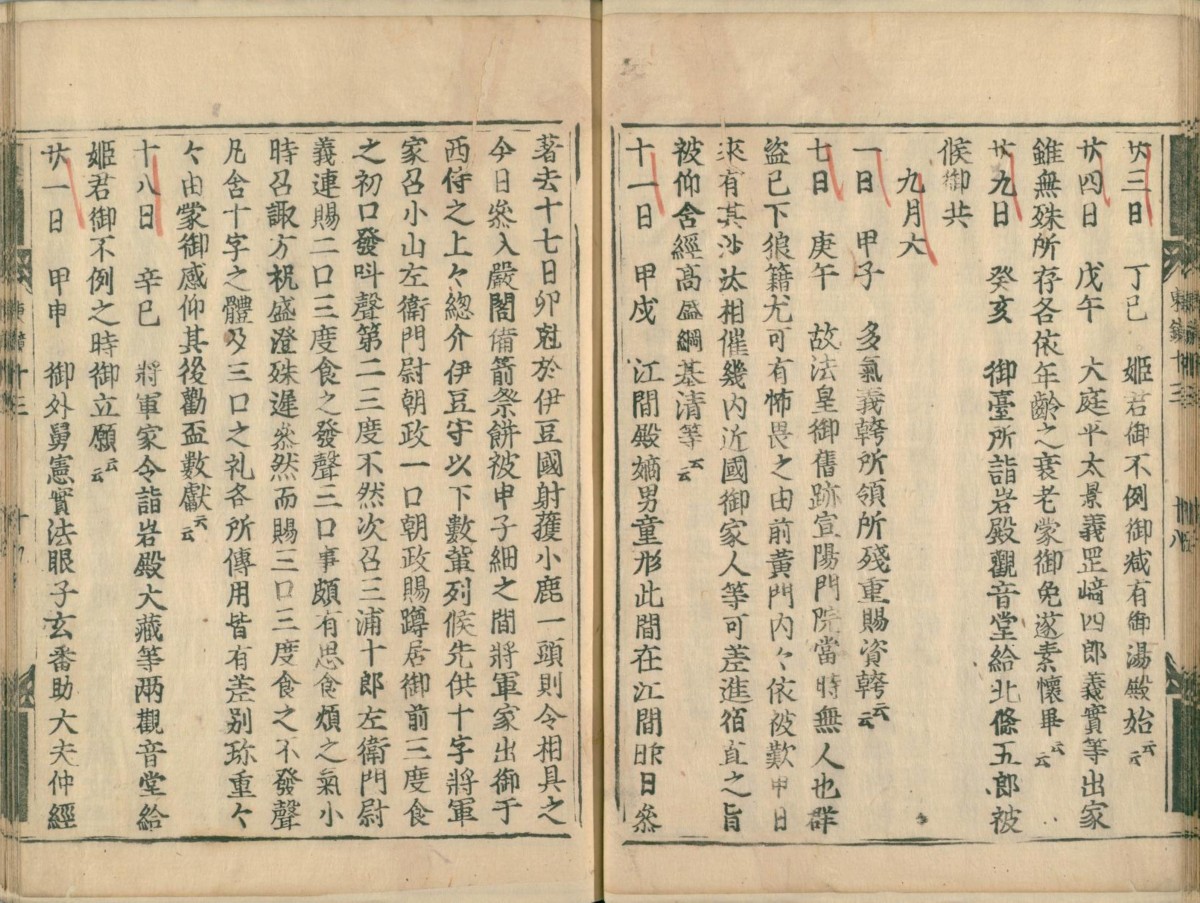 廿三日　丁巳　姬君御不例御减有御湯殿始云云
廿四日　戊午　大庭平太景義罡﨑四郎義實等出家
雖無殊所存各依年齡之衰老蒙御免遂素懷畢云云
廿九日　癸亥　御臺所詣岩殿觀音堂給北條五郎被
候御共
九月大
一日　甲子　多氣義幹所領所殘重賜資幹云云
七日　庚午　故法皇御舊跡宣陽門院當時無人也群
盜已下狼籍尤可有怖畏之由前黃門内々依被歎申日
來有其沙汰相催畿内近國御家人等可差進宿直之旨
被仰舍經高盛綱基清等云云
十一日　甲戌　江間殿嫡男童形此間在江間昨日叅
著去十七日卯尅於伊豆國射蒦小鹿一頭則令相具之
今日叅入嚴閤備箭祭餅被申子細之間將軍家出御于
西侍之上々總介伊豆守以下數輩列候先供十字將軍
家召小山左衛門尉朝政一口朝政賜蹲居御前三度食
之初口發叫聲第二三度不然次召三浦十郎左衛門尉
義連賜二口三度食之發聲三口事頗有思食煩之氣小
時召諏方祝盛澄殊遲叅然而賜三口三度食之不發聲
凡含十字之體及三口之礼各所傳用皆有差别珎重々
々由蒙御感仰其後勸盃數獻云云
十八日　辛巳　將軍家令詣岩殿大藏等兩觀音堂給
姬君御不例之時御立願云云
廿一日　甲申　御外舅憲實法眼子玄番助大夫仲經
東鑑十三　十八